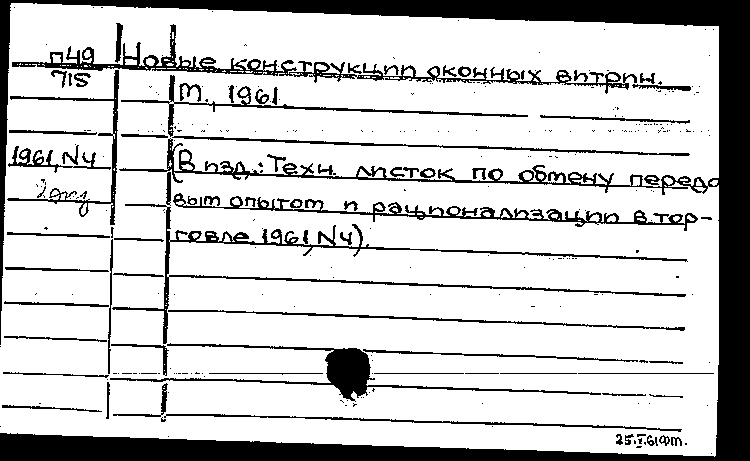 П49
718
Новые конструкции оконных витрин.
М., 1961.
1961, N4
2 экз
(В изд.: Техн. листок по обмену передо
вым опытом и рационализации в тор-
говле. 1961, N4).
25.I.61